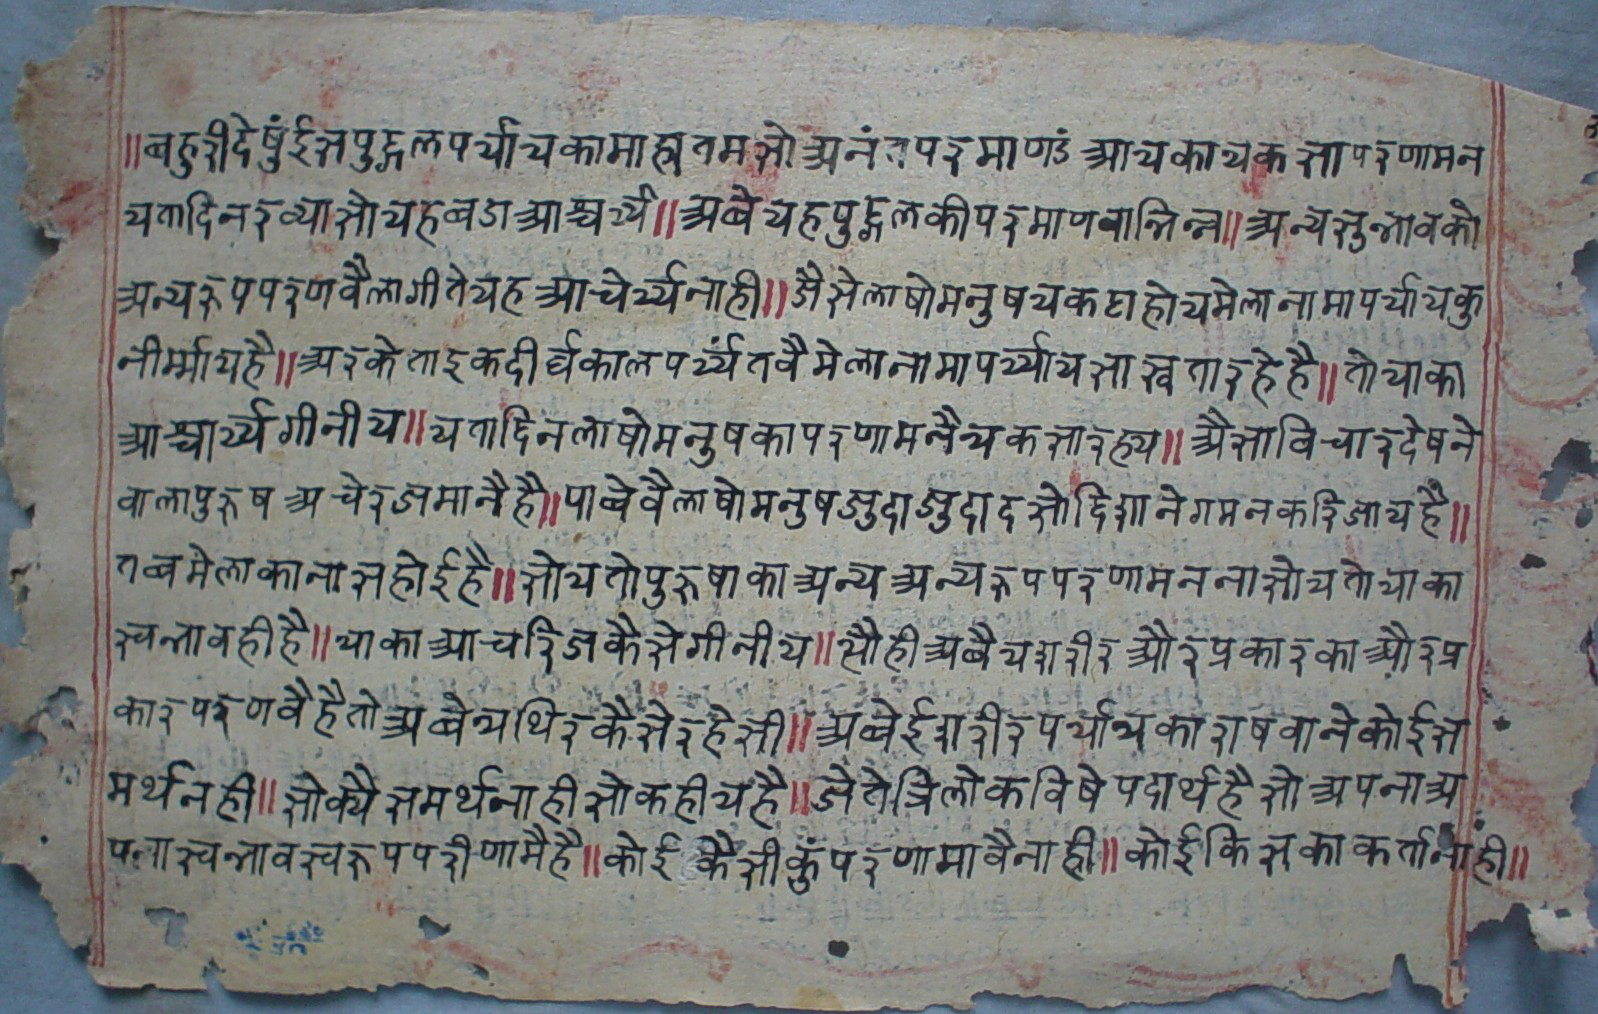 ॥बहुरीदेषुंईसपुद्गलपर्यायकामाह्यतमसोअनंतपरमाणडंआयकायकसापरणामन
यतादिनरव्यासोयहबडाआश्चर्य॥अबेयहपुद्गलकीपरमाणवाभिन्न॥अन्यसुभावको
अन्यरूपपरणवैलागीतेयहआचेर्य्यनाही॥जैसेलाषोमनुषयकठाहोयमेलानामापर्यायकु
नीर्म्मायहै॥अरकेताइकदीर्घकालपर्य्यंतवैमेलानामापर्य्यायसास्वतारहेहै॥तोयाका
आश्चार्य्यगीनीय॥यतादिनलाषोमनुषकापरणामनैयकसारह्य॥अैसाविचारदेषने
वालापुरूषअचेरजमानैहै॥पाबेवैलाषोमनुषजुदाजुदादसोदिशानेगमनकरिजायहै॥
तब्बमेलाकानासहोईहै॥सोयतोपुरूषाकाअन्यअन्यरूपपरणामननासोयतोयाका
स्वभावहीहै॥याकाआचरिजकैसेगीनीय॥सौहीअबैयशरीरऔरप्रकारकाऔरप्र
कारपरणवैहैतोअबेयथिरकैसेरहेसी॥अबेईशरीरपर्यायकाराषवानेकोईस
मर्थनही॥सोक्यैसमर्थनाहीसोकहीयहै॥जेतेत्रिलोकविषेपदार्थहैसोअपनाअ
पनास्वभावस्वरूपपरीणामैहै॥कोईकैसीकुंपरणामावैनाही॥कोईकिसकाकर्तानाही॥